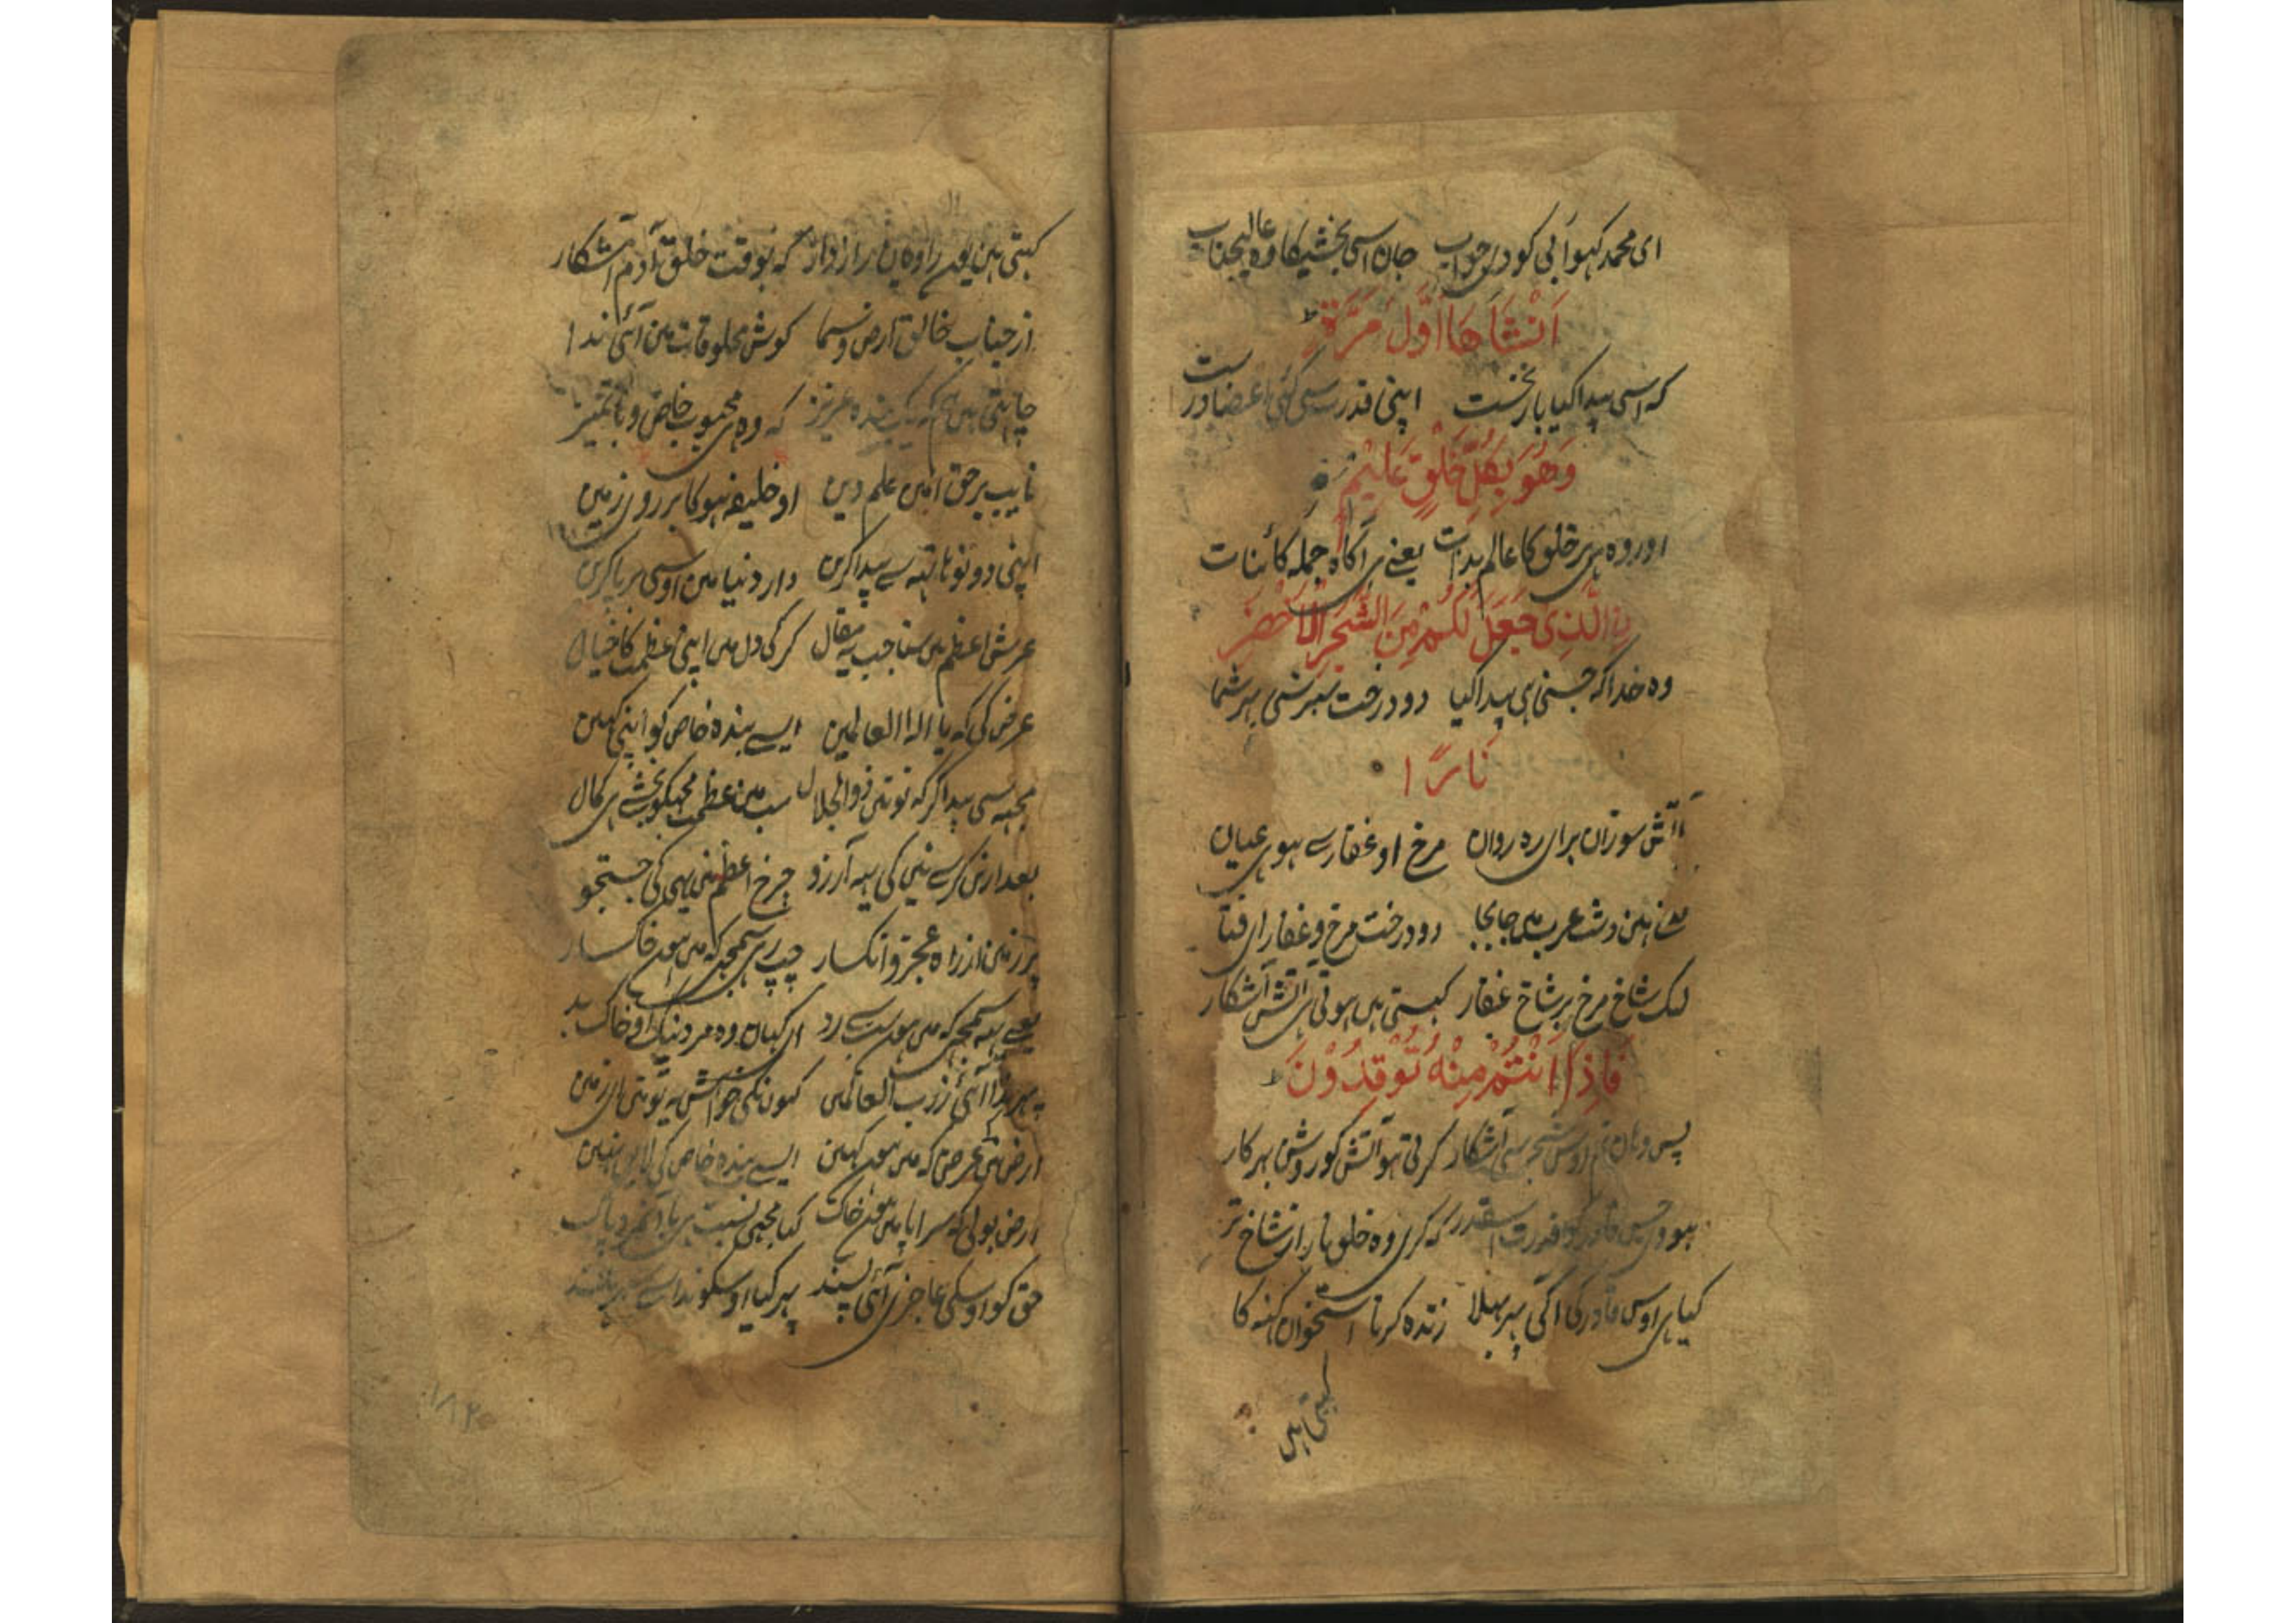 ای محمد کہو ابی کو در جواب جان اسی بخشیکا وہ عالیجناب
اَنْشَاَهَا اَوَّلَ مَرَّةٍ
کہ اسی پیدا کیا بار نخست اپنی قدرت سی کئی اعضا درست
وَهُوَ بِكُلِّ خَلْقٍ عَلِيْمٌ
اور وہ ہی ہر خلق کا عالم بذات یعنے ہی آکاہ جملہ کائنات
نِ الَّذِى جَعَلَ لَكُمْ مِنَ الشَّجَرِ الْاَخْضَرِ
وہ خدا کہ جسنی ہی پیدا کیا دو درخت سبز سی بہر شما
نَارًا
آتش سوزان برای رہ روان مرخ او عفار سے ہوی عیان
ہین دشت عرب میں جابجا دو درخت مرخ و عفار ای فتا
یک شاخ مرخ بر شاخ عفار کہستی ہیں ہوتی ہی آتش آشکار
فَاِذَا اَنْتُمْ مِنْهُ تُوْقِدُوْنَ
پس وہان تم اوس شجر سی آشکار کرتی ہو آتش کو روشن بہر کار
ہووی جس قادر کو قدرت اسقدر کہ کری وہ خلق نار از شاخ تر
کیا ہی اوس قادر کی اکی پہر بہلا زندہ کرنا استخوان کہنہ کا
کہتی ہیں
کہتی ہین یون راویان رازدار کہ بوقت خلق آدم آشکار
از جناب خالق ارض و سما کوش مخلوقات مین آئی ندا
چاہتی ہیں ہم کہ یک بندہ عزیز کہ وہ ہی محبوب خاص و با تمیز
نایب بر حق امین علم دین او خلیفہ ہوکا بر روی زمین
اپنی دونو ہاتہہ سے پیدا کرین دار دنیا مین اوسی برپا کرین
عرش اعظم میں سنا جب یہ مقال کر کی دل میں اپنی عظمت کا خیال
عرض کی کہ یا الہ العالمین ایسے بندہ خاص کو اپنی کہین
مجہہ سی پیدا کر کہ تونی ذوالجلال سب مین عظمت مجہکو بخشے ہی کمال
بعد ازین کرسے نی کی یہ آرزو چرخ اعظم نی یہی کی جستجو
پر زمین از راہ عجز و انکسار چپ رہی سمجہی کہ میں ہون خاکسار
یعنے یہ سمجہی کہ میں ہون سب سے رد ای کہان وہ مرد نیک او خاک بد
پہر ندا آئی ز رب العالمین کیون نکی خواہش یہ تونی ای زمین
ارض نی عرض کہ میں ہون کہین ایسے بندہ خاص کی لایق نہین
ارض بولی کہ سراپا میں ہون خاک کیا مجہی نسبت ہی با آن مرد پاک
حق کو اوسکی عاجزی آئی پسند پہر کیا اوسکو ندا سے بہرہ مند